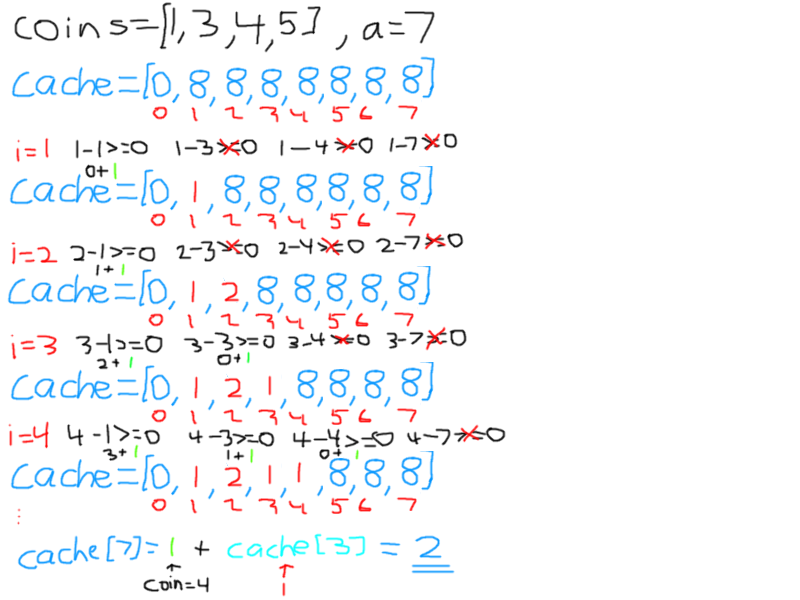 coins=[1,3,4,5], a=7
cache=[0,8,8,8,8,8,8,8]
0 1 2 3 4 5 6 7
i=1 1-1>=0 1-3>=0 1-4>=0 1-7>=0
0+1
cache=[0,1,8,8,8,8,8,8]
0 1 2 3 4 5 6 7
i=2 2-1>=0 2-3>=0 2-4>=0 2-7>=0
1+1
cache=[0,1,2,8,8,8,8,8]
0 1 2 3 4 5 6 7
i=3 3-1>=0 3-3>=0 3-4>=0 3-7>=0
2+1 0+1
cache=[0,1,2,1,8,8,8,8]
0 1 2 3 4 5 6 7
i=4 4-1>=0 4-3>=0 4-4>=0 4-7>=0
3+1 1+1 0+1
cache=[0,1,2,1,1,8,8,8]
0 1 2 3 4 5 6 7
⋮
cache[7]=1 + cache[3] = 2
↑ ↑
coin=4 1